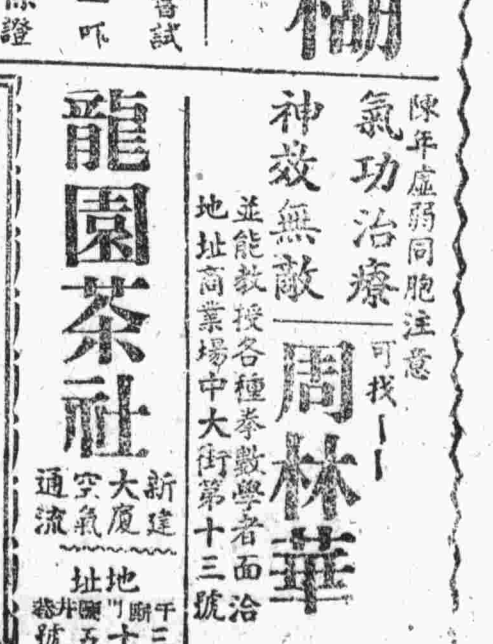 陳年虛弱同胞注意
氣功治療
神效無敵
可找——
周林華
並能教授各種拳數學者面洽
地址商業場中大街第十三號
龍園茶社
新建
大廈
空氣
通流
地址